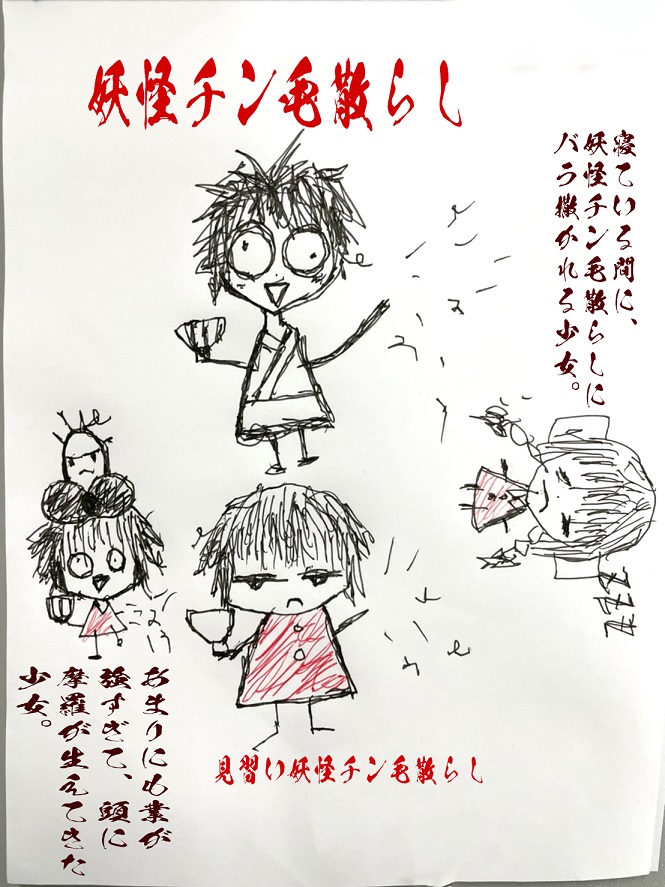 妖怪チン毛散らし
寝ている間に、
妖怪チン毛散らしに
バラ撒かれる少女。
zzz
見習い妖怪チン毛散らし
あまりにも業が
強すぎて、頭に
摩羅が生えてきた
少女。